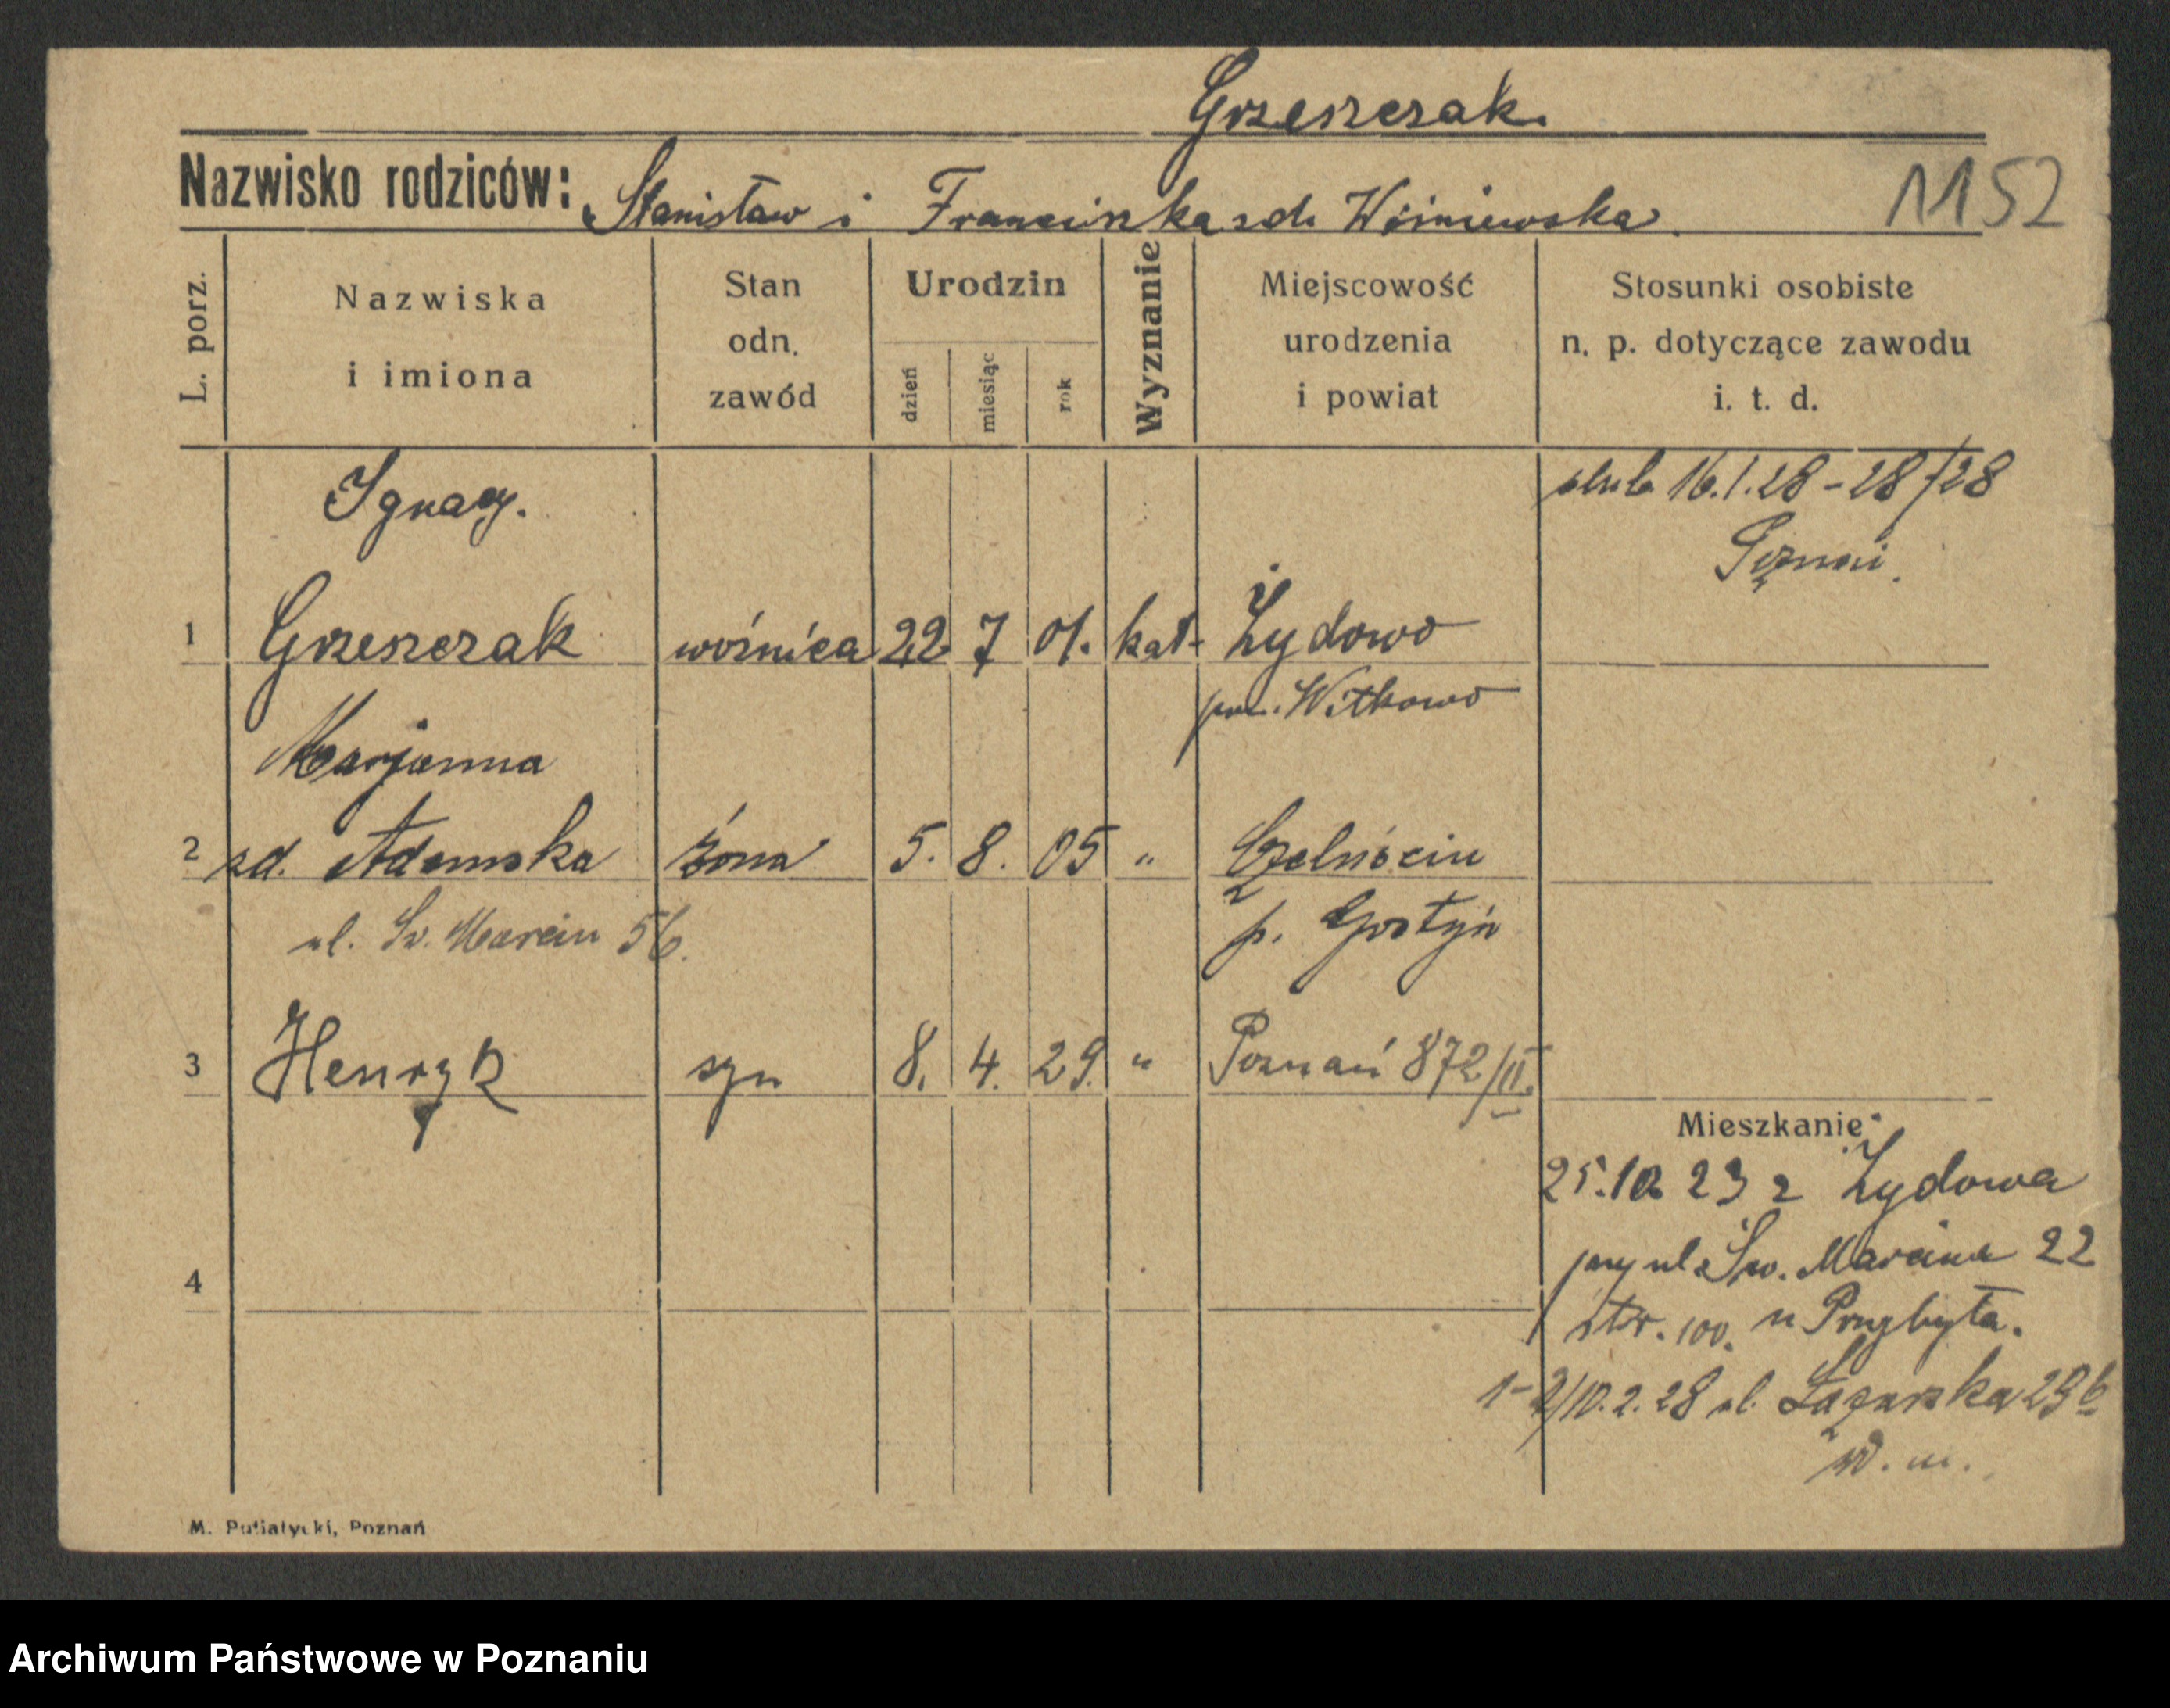 Grzeszczak.
Nazwisko rodziców: Stanisław i Franciszka zd. Wiśniewska
1152
L. porz.
Nazwiska i imiona
Stan odn. zawód
Urodzin
dzień
miesiąc
rok
Wyznanie
Miejscowość urodzenia i powiat
Stosunki osobiste n. p. dotyczące zawodu i. t. d.
ślub 16.1.28 - 28/28
Poznań.
Ignacy.
1 Grzeszczak woźnica 22 7 01. kat- Żydowo
pow. Witkowo
Marjanna
2 zd. Adamska żona 5. 8. 05 "
p. Gostyń
ul. Św. Marcin 56.
3 Henryk syn 8. 4. 29. " Poznań 872/II.
Mieszkanie:
25.10 23 z Żydowa
przy ul. Św. Marcina 22
u Przybyła.
10.2.28 ul. Łazarska 29b
w. m.
4
M. Putiatycki, Poznań
Archiwum Państwowe w Poznaniu